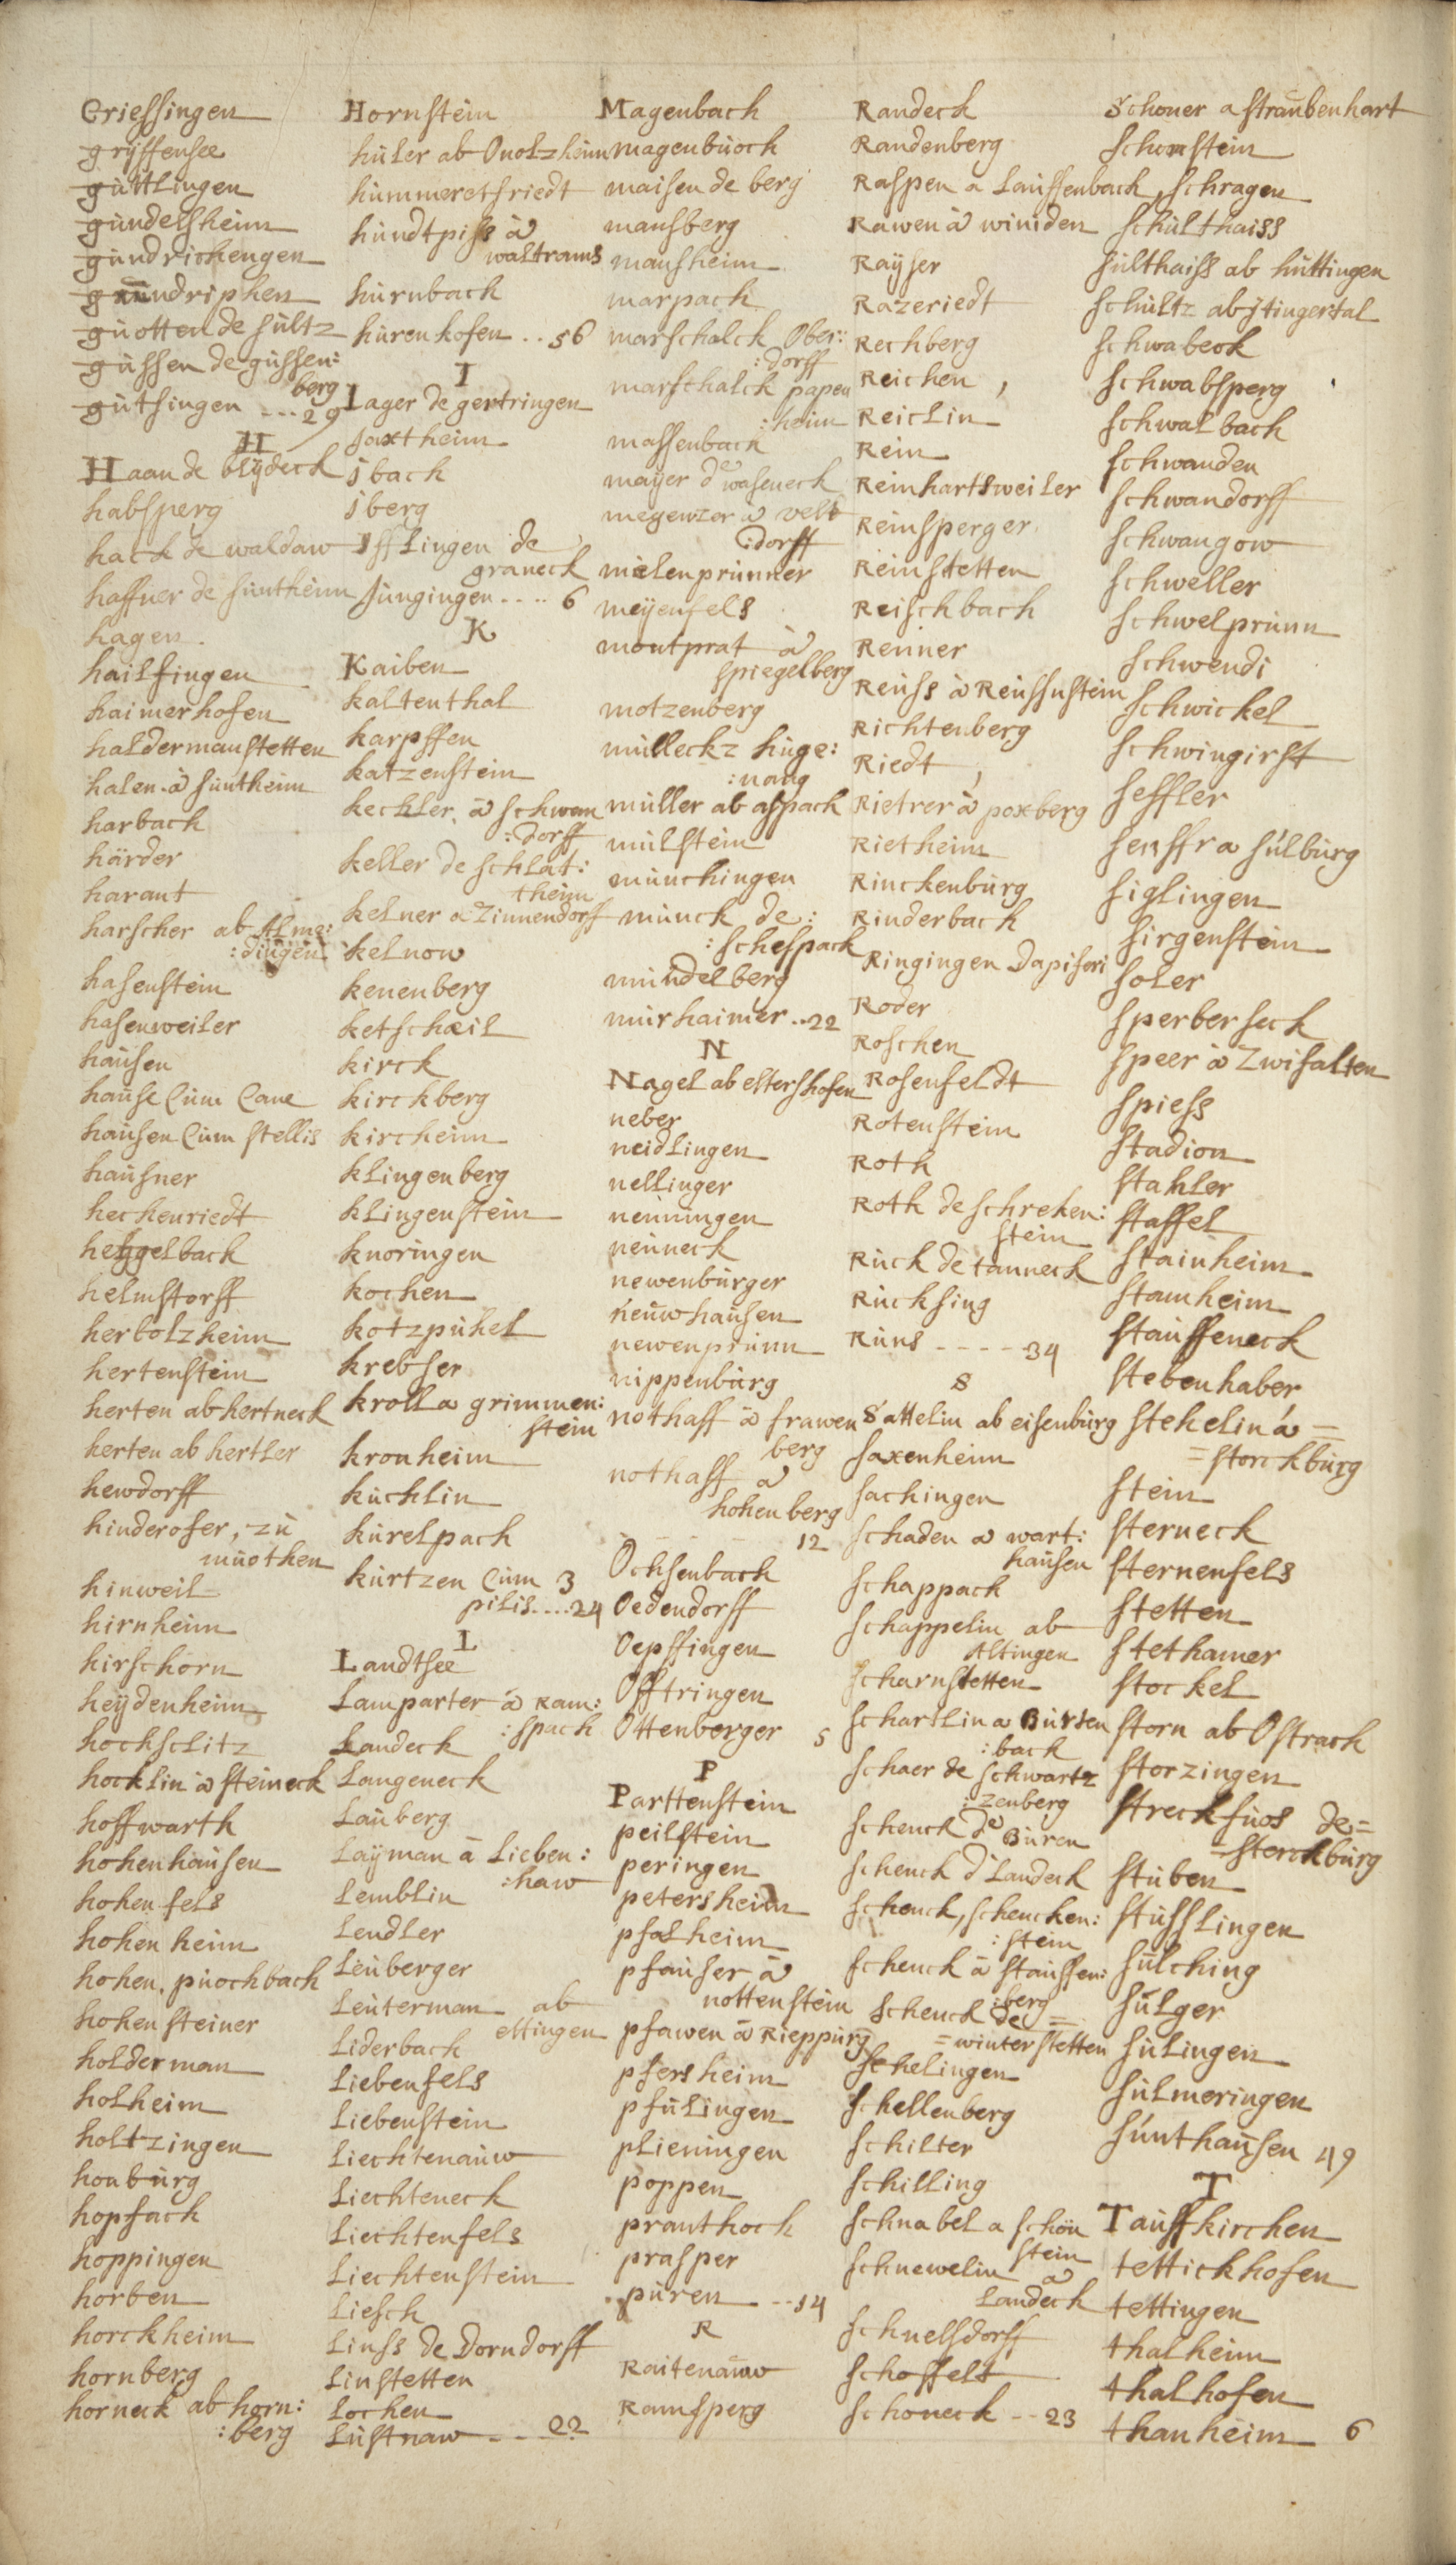 Griessingen
gryffensee
gültlingen
gundelsheim
gundrichengen
gundriphen
guotten de sultz
gussen de gussen:
berg
gutsingen ---29
H
Haan de blydeck
habsperg
hack de waldaw
haffner de suntheim
hagen
hailfingen
haimerhofen
haldermanstetten
halen à suntheim
harbach
härder
harant
harscher ab Alme:
:dingen
hasenstein
hasenweiler
hausen
hause Cum Cane
hausen Cum stellis
hausner
hechenriedt
heggelbach
helmstorff
herbolzheim
hertenstein
herten ab hertneck
herten ab hertler
hewdorff
hinderofer, zu
muothen
hinweil
hirnheim
hirschorn
heydenheim
hochschlitz
hocklin à steineck
hoffwarth
hohenhausen
hohenfels
hohenheim
hohen. puochbach
hohensteiner
holderman
holheim
holtzingen
honburg
hopfach
hoppingen
horben
horckheim
hornberg
horneck ab horn:
:berg
Hornstein
huler ab Onolzheim
hummeretsriedt
hundtpiss à
waltrams
hurnbach
hurenhofen .. 56
I
Iager de gertringen
Jaxtheim
jbach
jberg
Ifflingen de
graneck
Jungingen .... 6
K
Kaiben
kaltenthal
karpffen
katzenstein
kechler à schwan
:dorff
keller de schlat:
theim
kelner à Zinnendorff
kelnow
kenenberg
ketscheil
kirck
kirckberg
kircheim
klingenberg
klingenstein
knoringen
kochen
kotzpuhel
krebser
kroll a grimmen:
stein
kronheim
kuchlin
kurelpach
kurtzen Cum 3
pilis....24
L
Landtsee
Lamparter à Ram:
:spach
Landeck
Langeneck
Lauberg
Layman à Lieben:
:haw
Lemblin
Lendler
Leuberger
Leuterman ab
ettingen
Liderbach
Liebenfels
Liebenstein
Liechtenauw
Liechteneck
Liechtenfels
Liechtenstein
Liesch
Linss de Dorndorff
Linstetten
Lochen
Lustnaw ---- 22
Magenbach
magenbuoch
maisen de berg
mansberg
mansheim
marpach
marschalck Ober:
:dorff
marschalck papen
:heim
massenbach
mayer de waseneck
megenzer à velt
:dorff
mielenprunner
meyenfels
montprat à
spiegelberg
motzenberg
mulleckz huge:
:nang
muller ab aspach
mulstein
munchingen
munck de:
:schespack
mundelberg
murhaimer ..22
N
Nagel ab eltershofen
neber
neidlingen
nellinger
nenningen
neuneck
newenburger
neuwhausen
newenprunn
nippenburg
nothaff à frawen
berg
nothaff à
hohenberg
12
Ochsenbach
Oedendorff
Oepffingen
Offtringen
Ottenberger 5
P
Parttenstein
peilstein
peringen
petersheim
pfalheim
pfauser à
nottenstein
pfawen à Rieppurg
pfersheim
pfulingen
plieningen
poppen
pranthoch
prasper
puren --14
R
Raitenauw
Ramsperg
Randeck
Randenberg
Raspen a Lauffenbach
Rawen à winiden
Rayser
Razeriedt
Rechberg
Reichen ,
Reiclin
Rein
Reinhartsweiler
Reinsperger
Reinstetten
Reischbach
Renner
Reuss à Reussnstein
Richtenberg
Riedt ,
Rietrer à poxberg
Rietheim
Rinckenburg
Rinderbach
Ringingen Dapiferi
Roder
Roschen
Rosenfeldt
Rotenstein
Roth
Roth de schreken:
stein
Ruck de tanneck
Rucksing
Runs ---- 34
S
Sattelin ab eisenburg
saxenheim
sachingen
schaden à wart:
hausen
schappach
schappelin ab
Altingen
scharnstetten
schartlin a Burten
:bach
schaer de schwartz
:zenberg
schenck de Buren
schenck d Landeck
schenck, schencken:
:stein
schenck à stauffen:
:berg
schenck de =
= winterstetten
schelingen
schellenberg
schilter
schilling
schnabel a schön
stein
schnewelin à
Landeck
schnelsdorff
schoffelt
schoneck -- 23
Schoner a straubenhart
schornstein
schragen
schulthaiss
sulthaiss ab huttingen
schultz ab jtingertal
schwabeck
schwabsperg
schwalbach
schwanden
schwandorff
schwangow
schweller
schwelprunn
schwendi
schwickel
schwingirst
seffler
senffr a sulburg
siglingen
sirgenstein
soler
sperberseck
speer à Zwifalten
spiess
stadion
stahler
staffel
stainheim
stamheim
stauffeneck
stebenhaber
stehelin à =
= storckburg
stein
sterneck
sternenfels
stetten
stethamer
stockel
storn ab Ostrach
storzingen
streckfuos de=
=sterckburg
stuben
stusslingen
sulching
sulger
sulingen
sulmeringen
sunthausen 49
T
Tauffkirchen
tettickhofen
tettingen
thalheim
thalhofen
thanheim 6